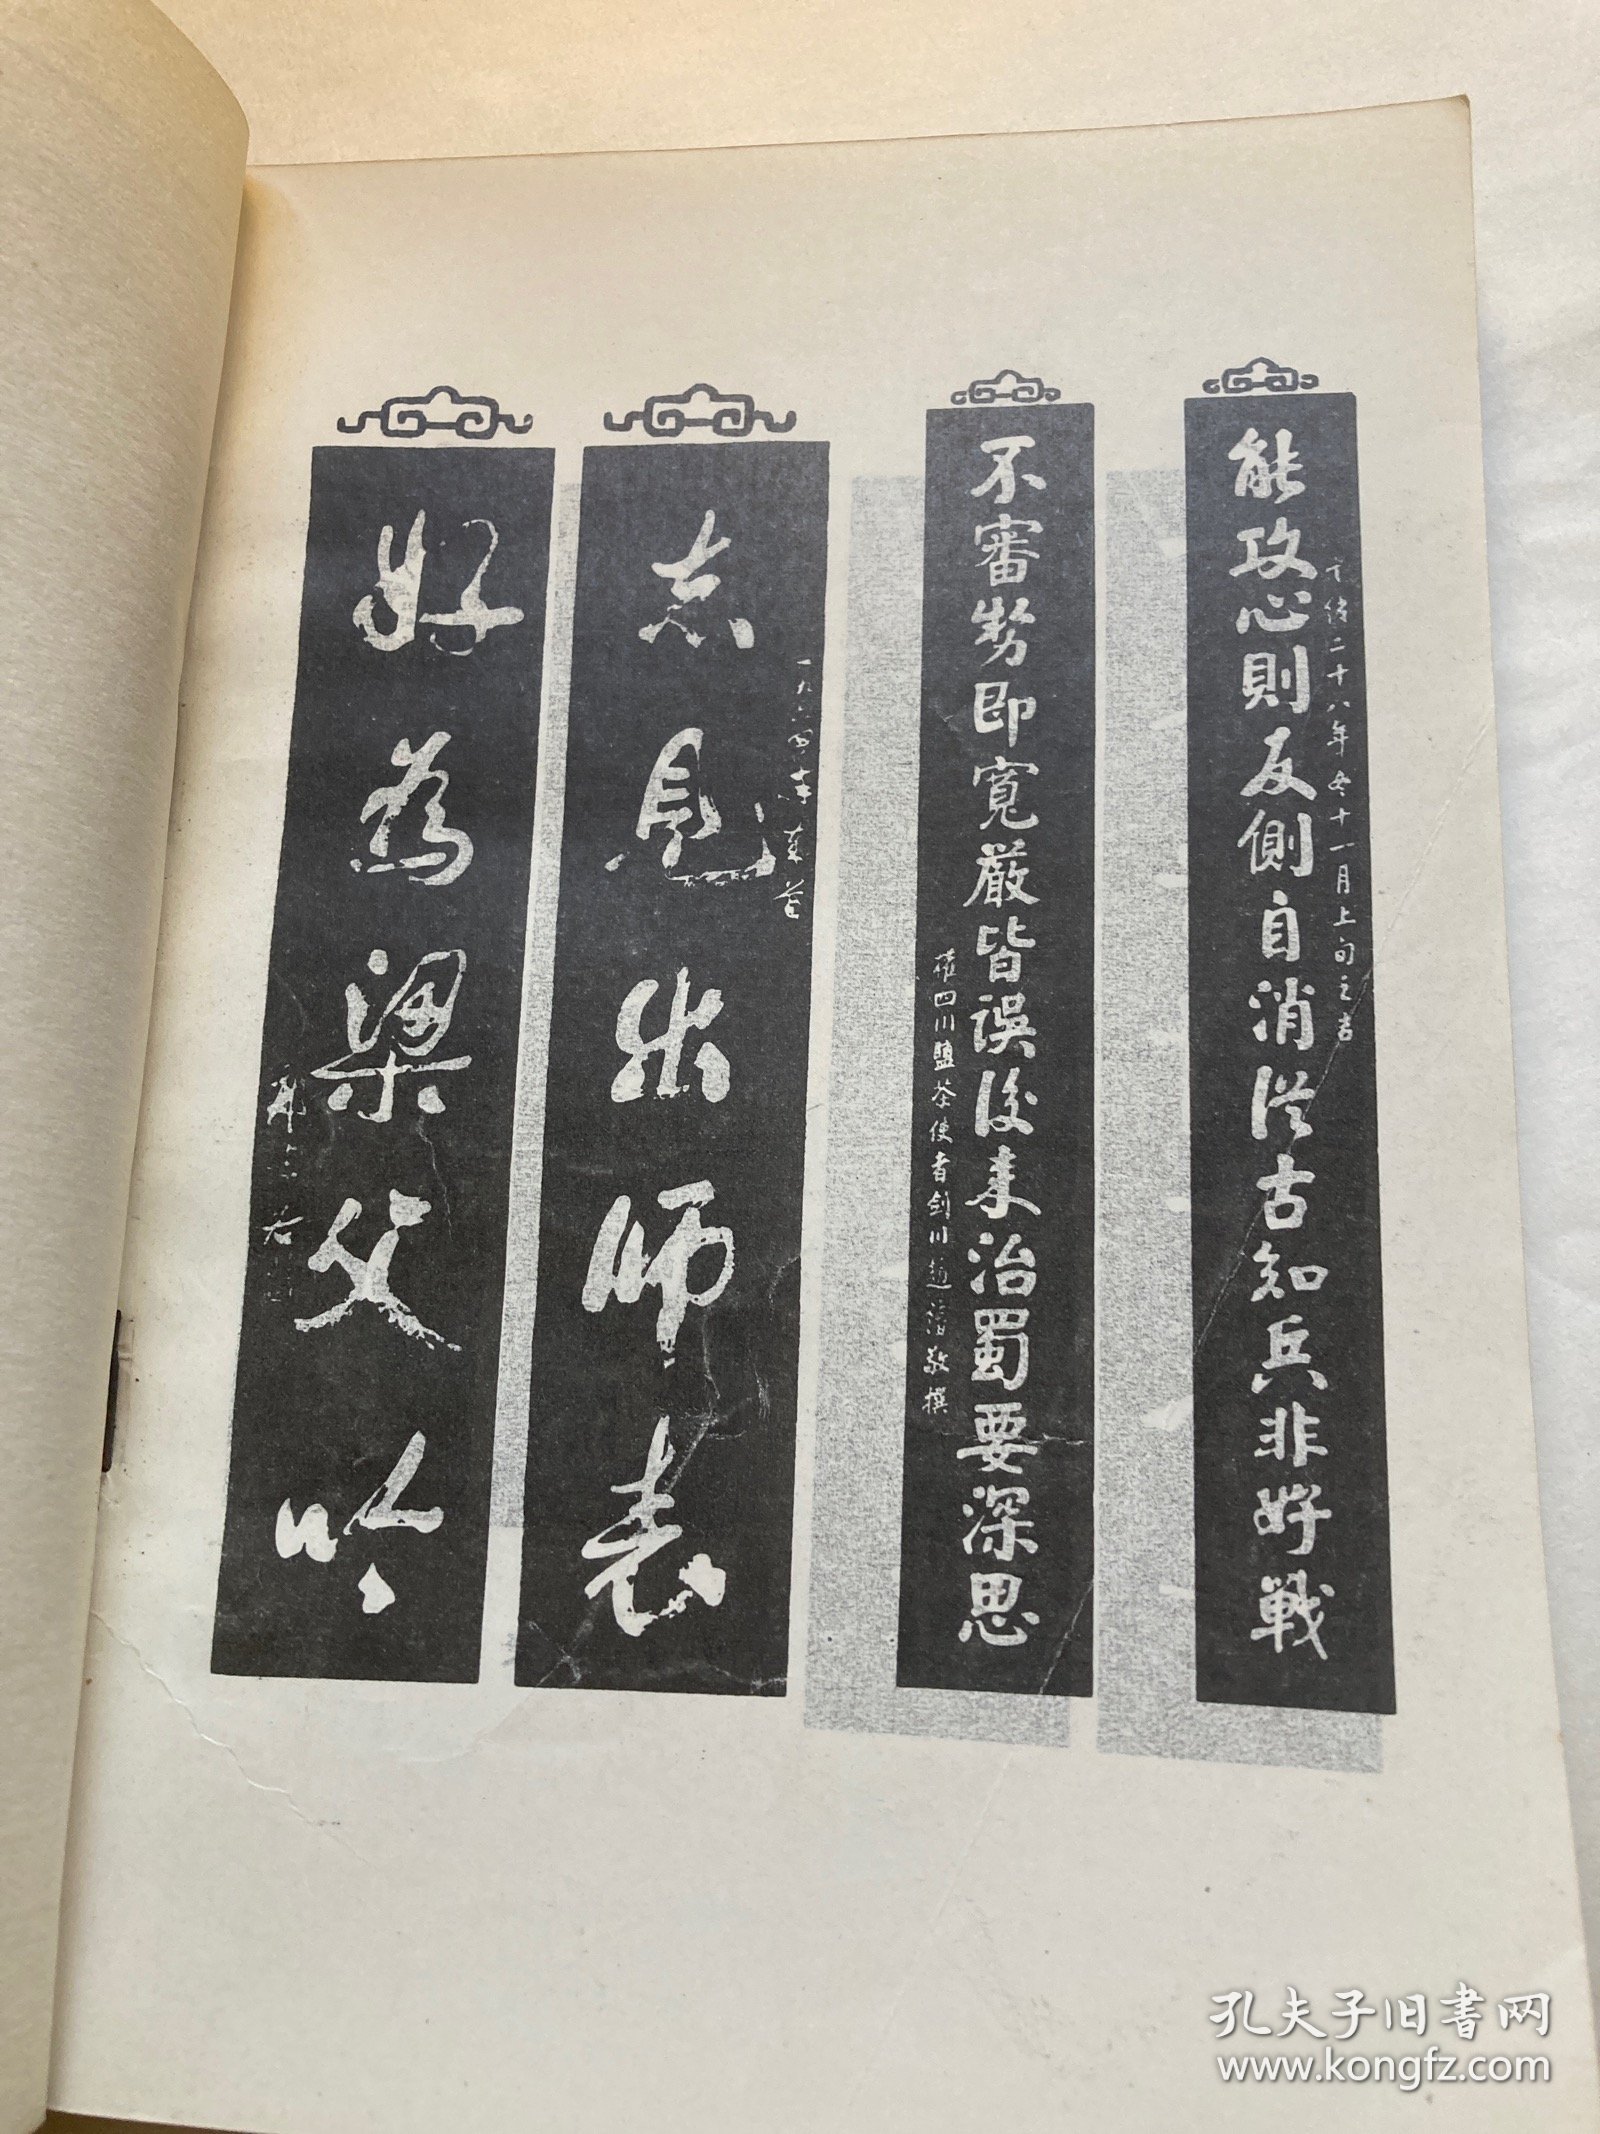 能攻心則反側自消從古知兵非好戰
光緒二十八年冬十一月上旬之吉
不審勢即寬嚴皆誤後來治蜀要深思
權四川鹽茶使者劍川趙藩敬撰
志見出師表
一九六四年春節
好為梁父吟
郭沫若
孔夫子旧书网
www.kongfz.com